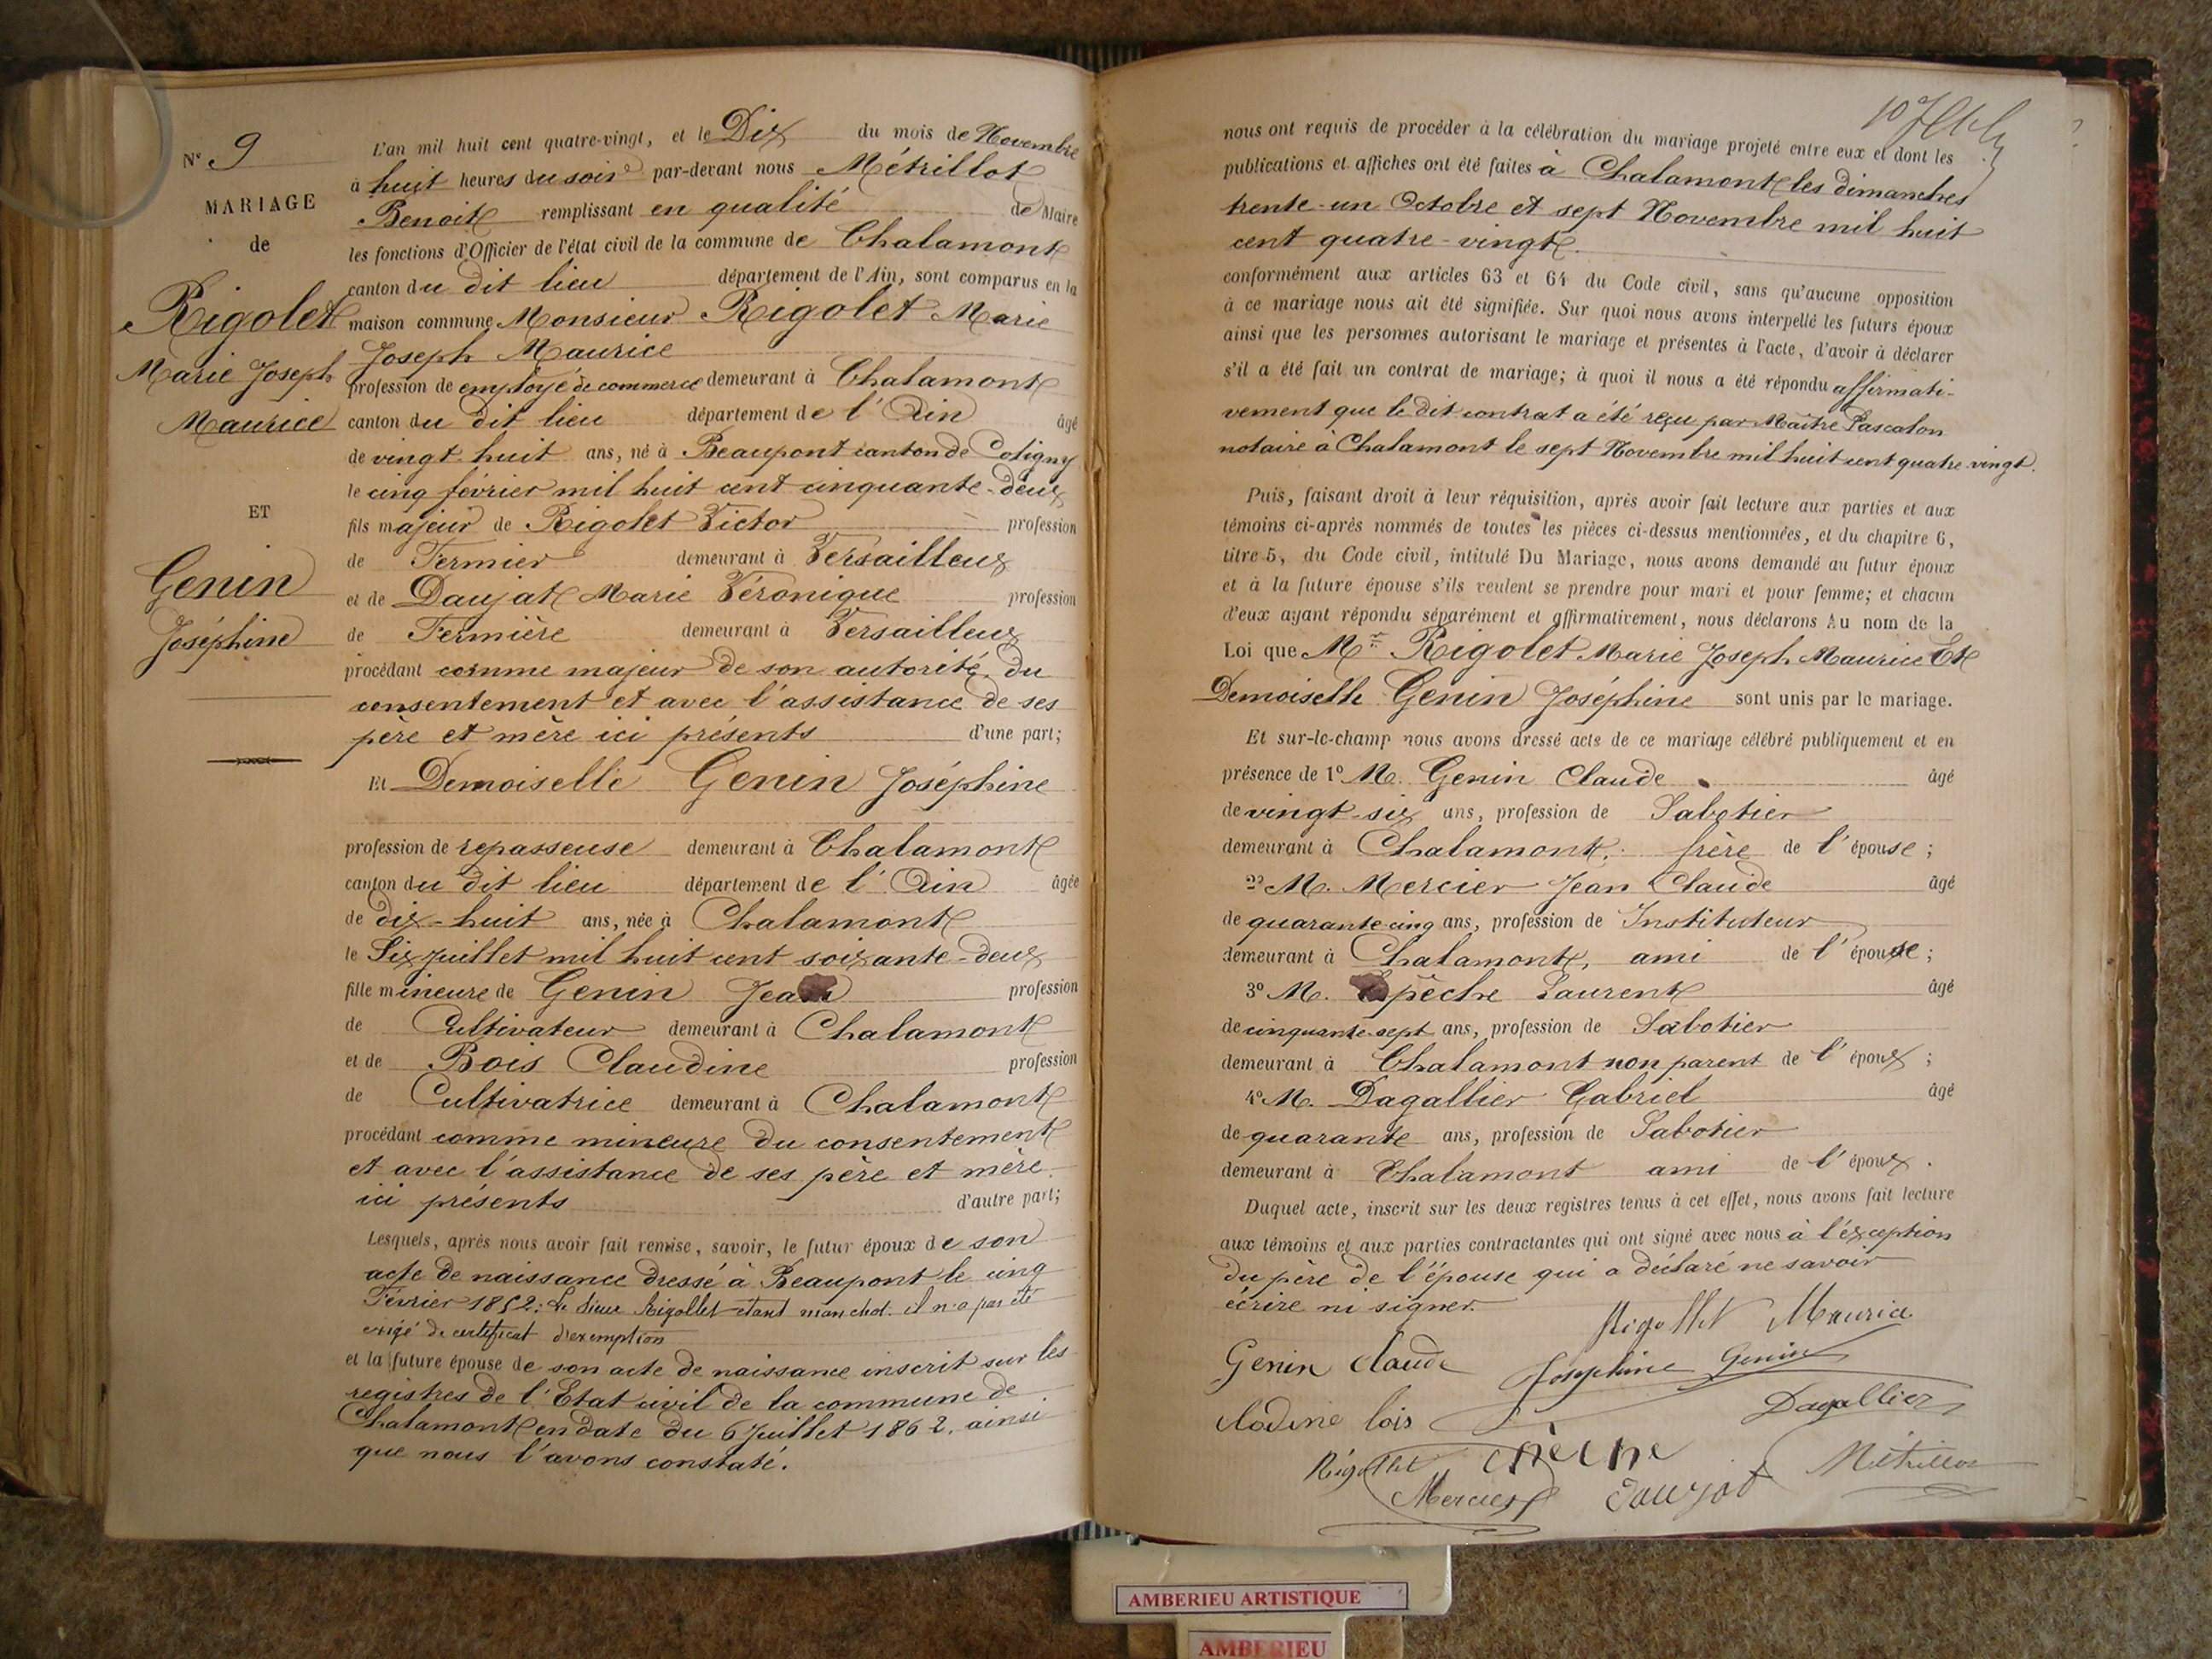 N° 9
MARIAGE
de
Rigolet
Marie Joseph
Maurice
ET
Genin
Joséphine
L'an mil huit cent quatre-vingt, et le Dix du mois de Novembre
à huit heures du soir par-devant nous Métrillot
Benoit remplissant en qualité de Maire
les fonctions d'Officier de l'état civil de la commune de Chalamont
canton du dit lieu département de l'Ain, sont comparus en la
maison commune Monsieur Rigolet Marie
Joseph Maurice
profession de employé de commerce demeurant à Chalamont
canton du dit lieu département de l'Ain âgé
de vingt-huit ans, né à Beaupont canton de Coligny
le cinq février mil huit cent cinquante-deux
fils majeur de Rigolet Victor profession
de Fermier demeurant à Versailleux
et de Daujat Marie Véronique profession
de Fermière demeurant à Versailleux
procédant comme majeur de son autorité, du
consentement et avec l'assistance de ses
père et mère ici présents d'une part;
Et Demoiselle Genin Joséphine
profession de repasseuse demeurant à Chalamont
canton du dit lieu département de l'Ain âgée
de dix-huit ans, née à Chalamont
le Six Juillet mil huit cent soixante-deux
fille mineure de Genin Jean profession
de Cultivateur demeurant à Chalamont
et de Bois Claudine profession
de Cultivatrice demeurant à Chalamont
procédant comme mineure du consentement
et avec l'assistance de ses père et mère
ici présents d'autre part;
Lesquels, après nous avoir fait remise, savoir, le futur époux de son
acte de naissance dressé à Beaupont le cinq
Février 1852; Le Sieur Rigollet étant manchot. il n'a pas été
exigé de certificat d'exemption
et la future épouse de son acte de naissance inscrit sur les
registres de l'Etat civil de la commune de
Chalamont en date du 6 Juillet 1862. ainsi
que nous l'avons constaté.
nous ont requis de procéder à la célébration du mariage projeté entre eux et dont les
publications et affiches ont été faites à Chalamont les dimanches
trente-un Octobre et sept Novembre mil huit
cent quatre-vingt.
conformément aux articles 63 et 64 du Code civil, sans qu'aucune opposition
à ce mariage nous ait été signifiée. Sur quoi nous avons interpellé les futurs époux
ainsi que les personnes autorisant le mariage et présentes à l'acte, d'avoir à déclarer
s'il a été fait un contrat de mariage; à quoi il nous a été répondu affirmati-
vement que le dit contrat a été reçu par Maître Pascalon
notaire à Chalamont le sept Novembre mil huit cent quatre-vingt.
Puis, faisant droit à leur réquisition, après avoir fait lecture aux parties et aux
témoins ci-après nommés de toutes les pièces ci-dessus mentionnées, et du chapitre 6,
titre 5, du Code civil, intitulé Du Mariage, nous avons demandé au futur époux
et à la future épouse s'ils veulent se prendre pour mari et pour femme; et chacun
d'eux ayant répondu séparément et affirmativement, nous déclarons Au nom de la
Loi que Mr Rigolet Marie Joseph Maurice Et
Demoiselle Genin Joséphine sont unis par le mariage.
Et sur-le-champ nous avons dressé acte de ce mariage célébré publiquement et en
présence de 1° M. Genin Claude âgé
de vingt-six ans, profession de Sabotier
demeurant à Chalamont, frère de l'épouse;
2° M. Mercier Jean Claude âgé
de quarante-cinq ans, profession de Instituteur
demeurant à Chalamont, ami de l'épouse;
3° M. Laurent âgé
de cinquante-sept ans, profession de Sabotier
demeurant à Chalamont non parent de l'époux;
4° M. Dagallier Gabriel âgé
de quarante ans, profession de Sabotier
demeurant à Chalamont ami de l'époux.
Duquel acte, inscrit sur les deux registres tenus à cet effet, nous avons fait lecture
aux témoins et aux parties contractantes qui ont signé avec nous à l'exception
du père de l'épouse qui a déclaré ne savoir
écrire ni signer.
Rigollet Maurice
Genin Claude Joséphine Genin
Clodine bois Dagallier
Rigollet
Mercier Daujat Métrillot
AMBERIEU ARTISTIQUE
AMBERIEU